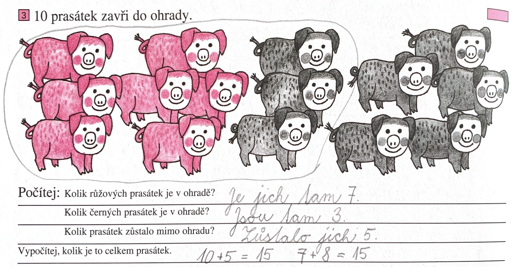 3 10 prasátek zavři do ohrady.
Počítej: Kolik růžových prasátek je v ohradě? Je jich tam 7.
Kolik černých prasátek je v ohradě? Jsou tam 3.
Kolik prasátek zůstalo mimo ohradu? Zůstalo jich 5.
Vypočítej, kolik je to celkem prasátek. 10+5 = 15 7+8 = 15